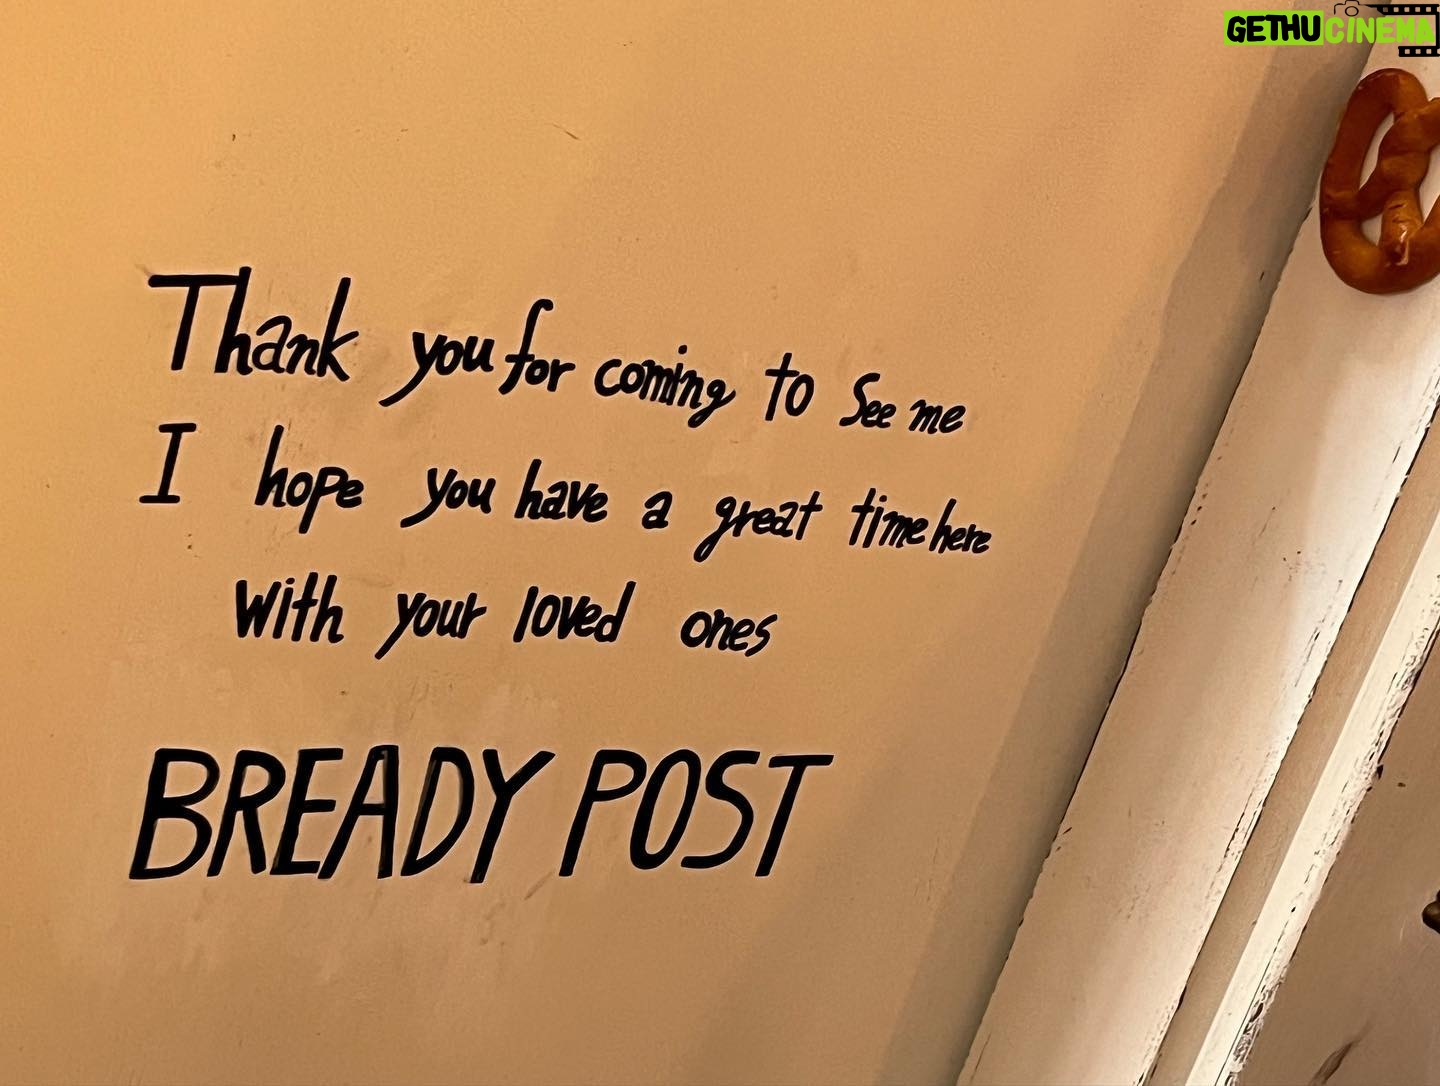 GETHUCINEMA
Thank you for coming to See me
I hope you have a great time here
With your loved ones
BREADY POST